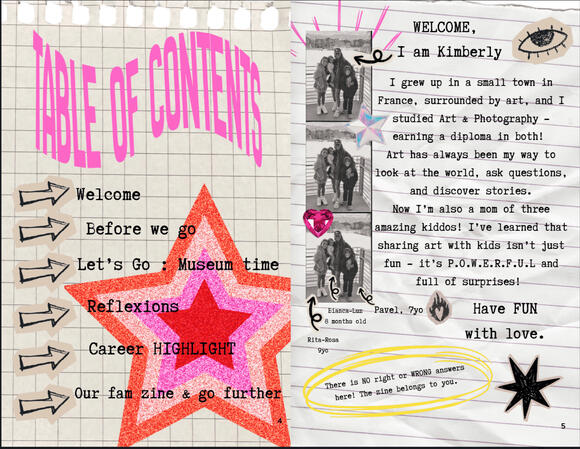 TABLE OF CONTENTS
Welcome
Before we go
Let's Go : Museum time
Reflexions
Career HIGHLIGHT
Our fam zine & go further
4
WELCOME,
I am Kimberly
I grew up in a small town in
France, surrounded by art, and I
studied Art & Photography –
earning a diploma in both!
Art has always been my way to
look at the world, ask questions,
and discover stories.
Now I'm also a mom of three
amazing kiddos! I've learned that
sharing art with kids isn't just
fun – it's P.O.W.E.R.F.U.L and
full of surprises!
Bianca-Lux
8 months old
Pavel, 7yo
Rita-Rosa
9yo
Have FUN
with love.
There is NO right or WRONG answers
here! The zine belongs to you.
5